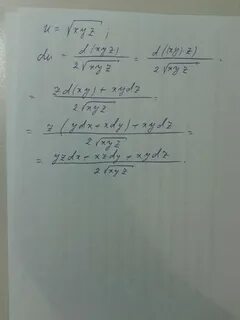 u = √xyz ;
du = d(xyz) / 2√xyz = d((xy)·z) / 2√xyz =
= zd(xy) + xydz / 2√xyz =
= z(ydx + xdy) + xydz / 2√xyz =
= yzdx + xzdy + xydz / 2√xyz .